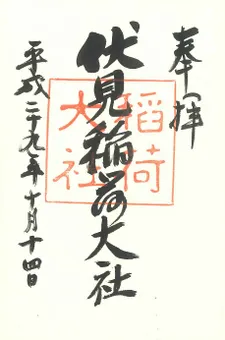 奉拝
伏見稲荷大社
稲荷
大社
平成二十九年十月十四日